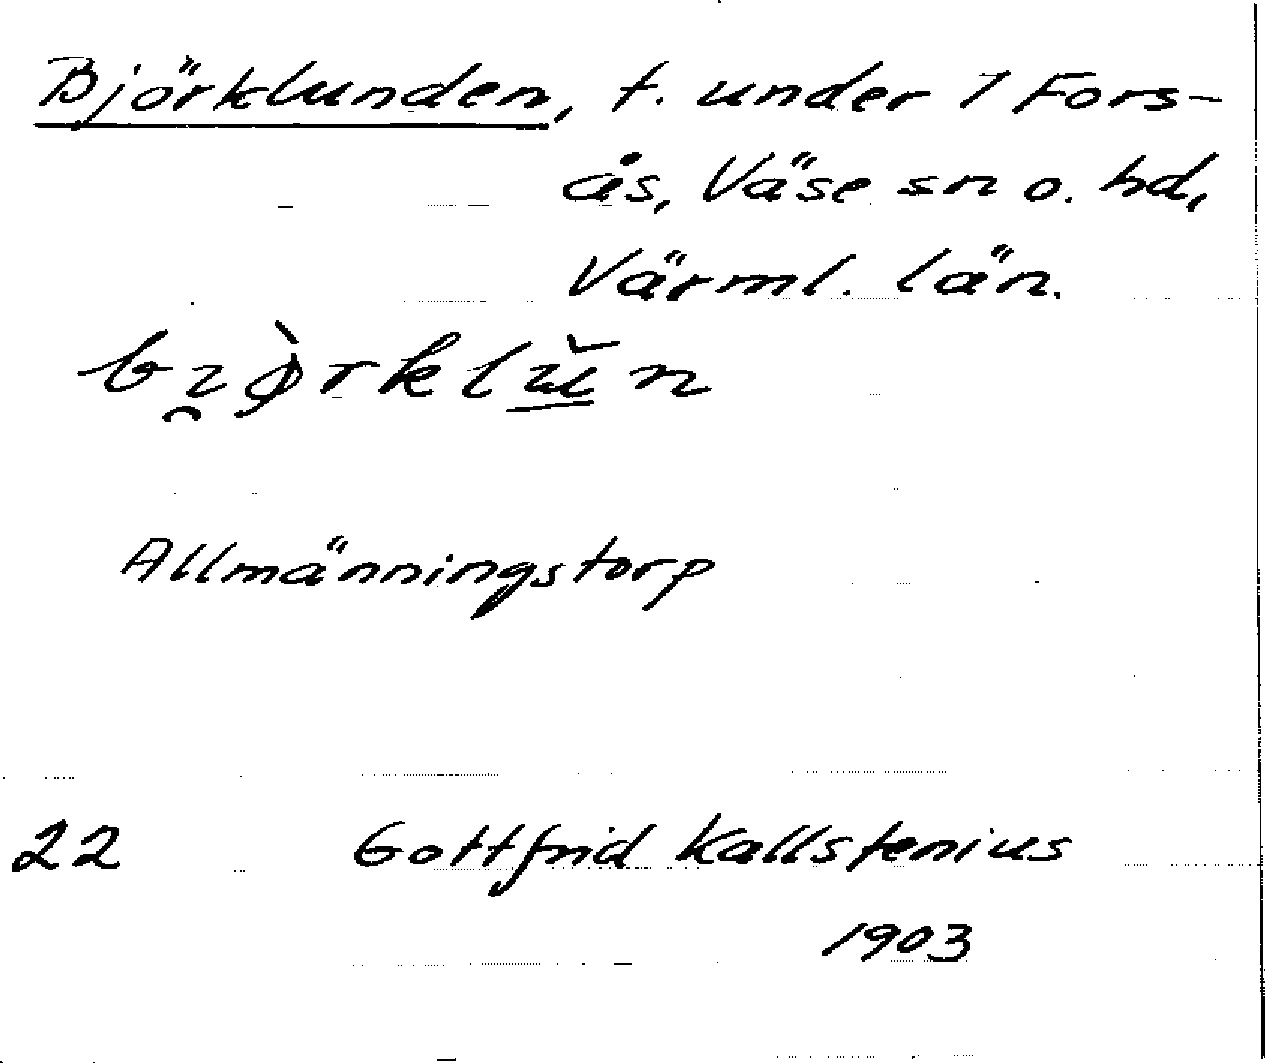 Björklunden, t. under 1 Fors-
ås, Väse sn o. hd,
Värml. län.
Allmänningstorp
22 Gottfrid Kallstenius
1903